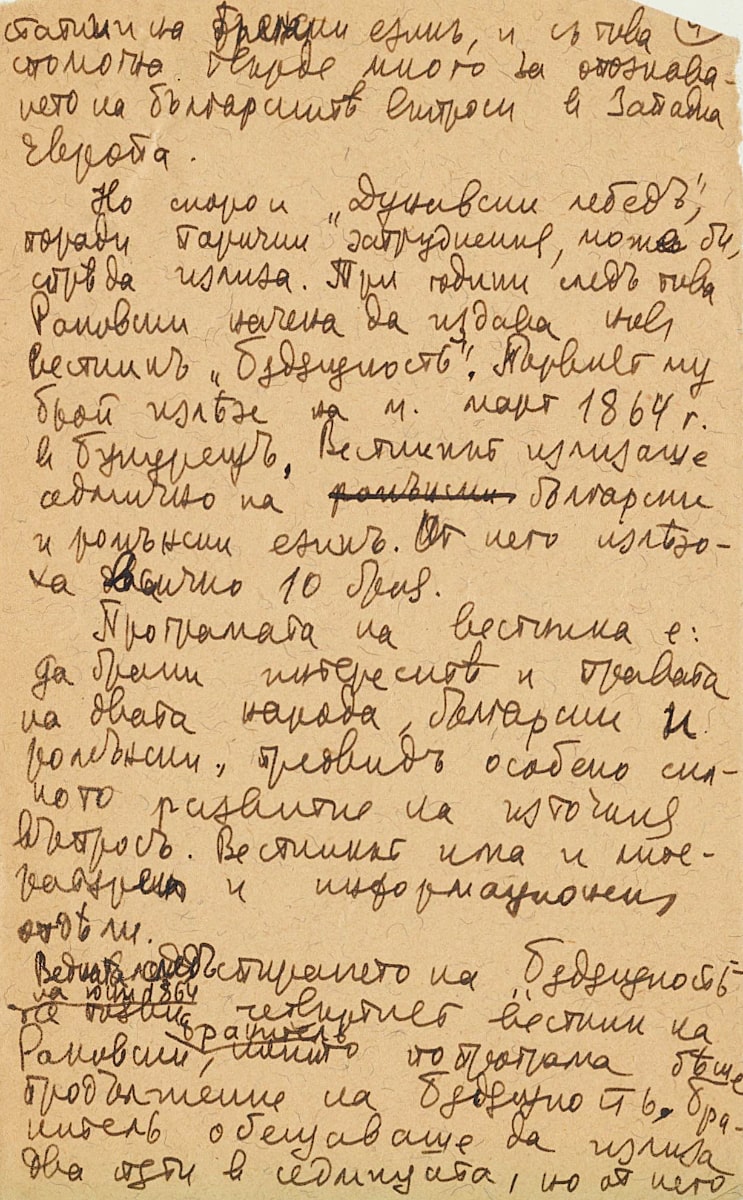 статии на френски езикъ, и съ това 4
спомогна твърде много за опознава-
нето на българскитѣ въпроси в Западна
Европа.
Но скоро и „Дунавски лебедъ",
поради парични затруднения, може би,
спрѣ да излиза. Три години следъ това
Раковски начена да издава новъ
вестникъ „Бѫдѫщность". Първият му
брой излѣзе на 8. март 1864 г.
в Букурещъ. Вестникът излизаше
седмично на ромънски български
и ромънски езикъ. От него излѣзо-
ха всичко 10 броя.
Програмата на вестника е:
да брани интереситѣ и правата
на двата народа, български и
ромънски, предвидъ особено сил-
ното развитие на източния
въпросъ. Вестникът има и лите-
ратурен и информационен
отдѣли.
Веднага следъ спирането на „Бѫдѫщность
на юни 1864
се появи четвъртият вестник на
бранитель
Раковски, който по програма бѣше
продължение на Бѫдѫщность. Бра-
нитель обещаваше да излиза
два пѫти в седмицата, но от него